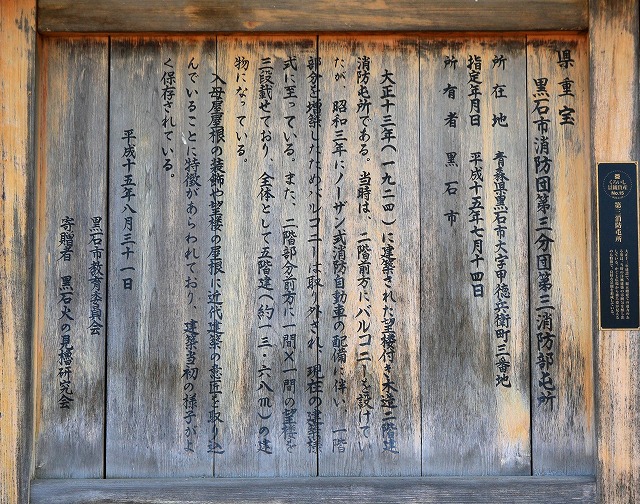 県重宝
黒石市消防団第三分団第三消防部屯所
所在地 青森県黒石市大字甲徳兵衛町三番地
指定年月日 平成十五年七月十四日
所有者 黒石市
大正十三年(一九二四)に建築された望楼付き木造二階建
消防屯所である。当時は、二階前方にバルコニーを設けてい
たが、昭和三年にノーザン式消防自動車の配備に伴い、一階
部分を増築したためバルコニーは取り外され、現在の建築様
式に至っている。また、二階部分前方に一間×一間の望楼を
三段載せており、全体として五階建(約一三・六八m)の建
物になっている。
入母屋屋根の装飾や望楼の屋根に近代建築の意匠を取り込
んでいることに特徴があらわれており、建築当初の様子がよ
く保存されている。
平成十五年八月三十一日
黒石市教育委員会
寄贈者 黒石火の見櫓研究会
くろいし
景観資産
No.15
第三消防屯所